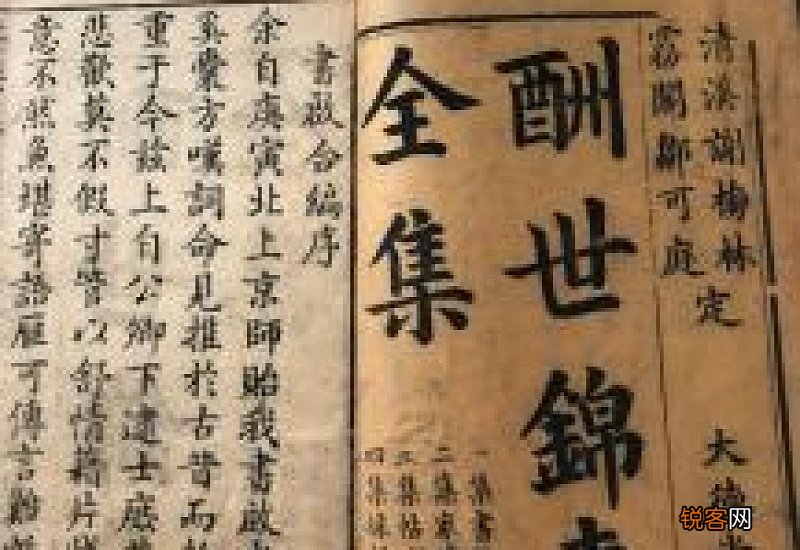 清溪謝梅林定
霧閣鄒可庭
大
酬世錦
全集
一集書
二集家
三集帖
四集
書啟合編序
余自庚寅北上京師貽我書啟
奚囊方嘆詞命見推於古昔而
重于今茲上自公卿下逮士庶
悲歡莫不假寸管以舒情藉片
意不然魚堪寄語雁可傳言
锐客网